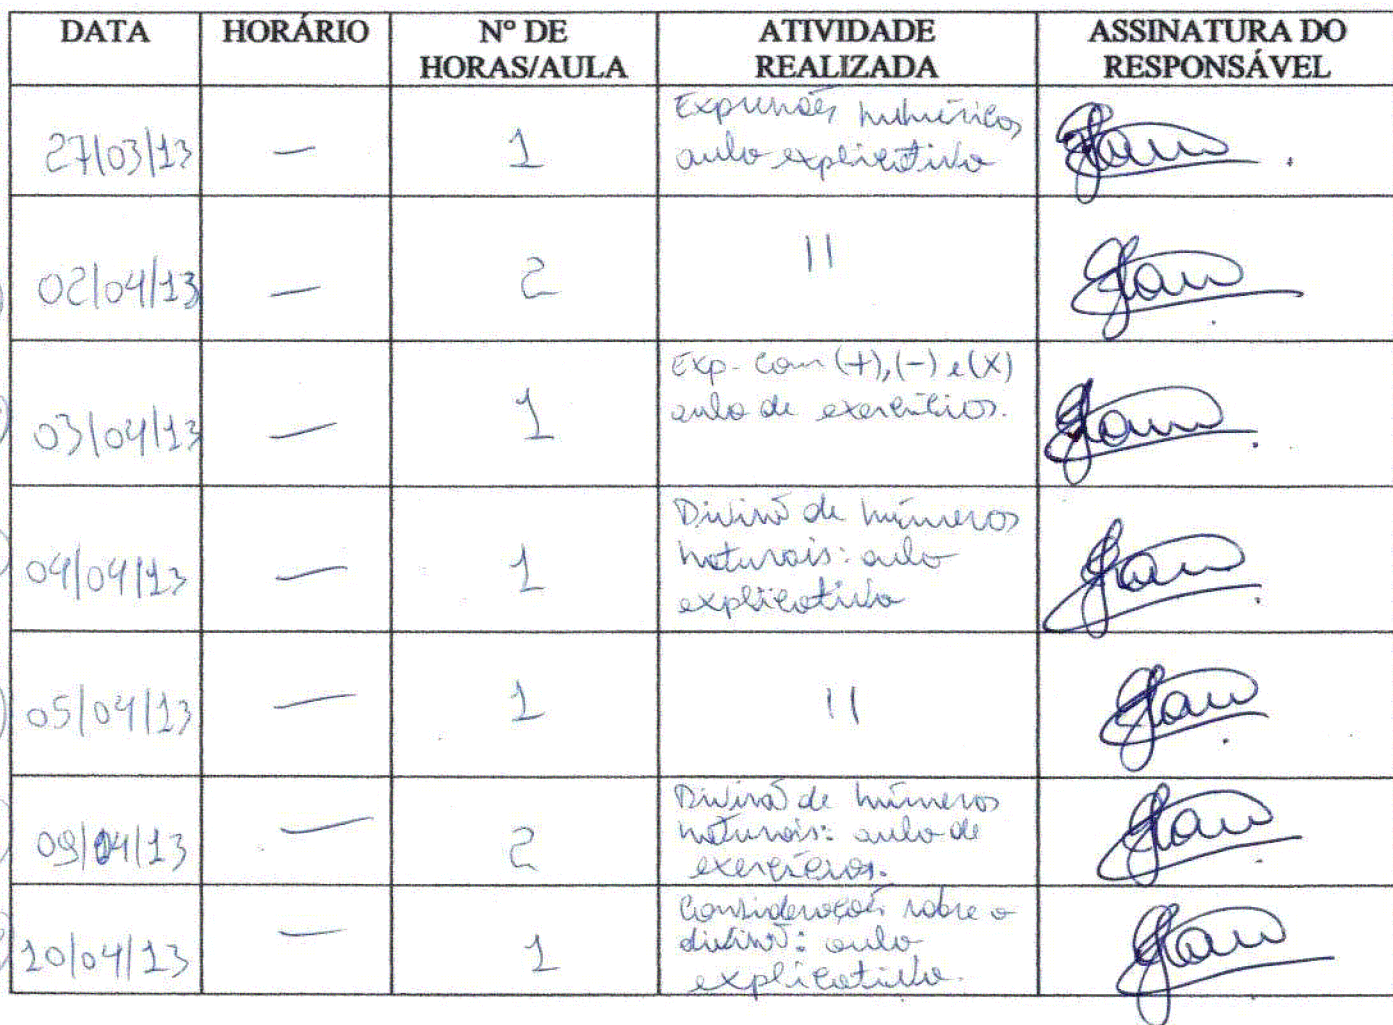 DATA HORÁRIO Nº DE HORAS/AULA ATIVIDADE REALIZADA ASSINATURA DO RESPONSÁVEL
27/03/13 — 1 Expressões numéricas,
aula explicativa
02/04/13 — 2 11
03/04/13 — 1 Exp. com (+), (-) e (x)
aula de exercícios.
04/04/13 — 1 Divisão de números
naturais: aula
explicativa
05/04/13 — 1 11
09/04/13 — 2 Divisão de números
naturais: aula de
exercícios.
10/04/13 — 1 Considerações sobre a
divisão: aula
explicativa.